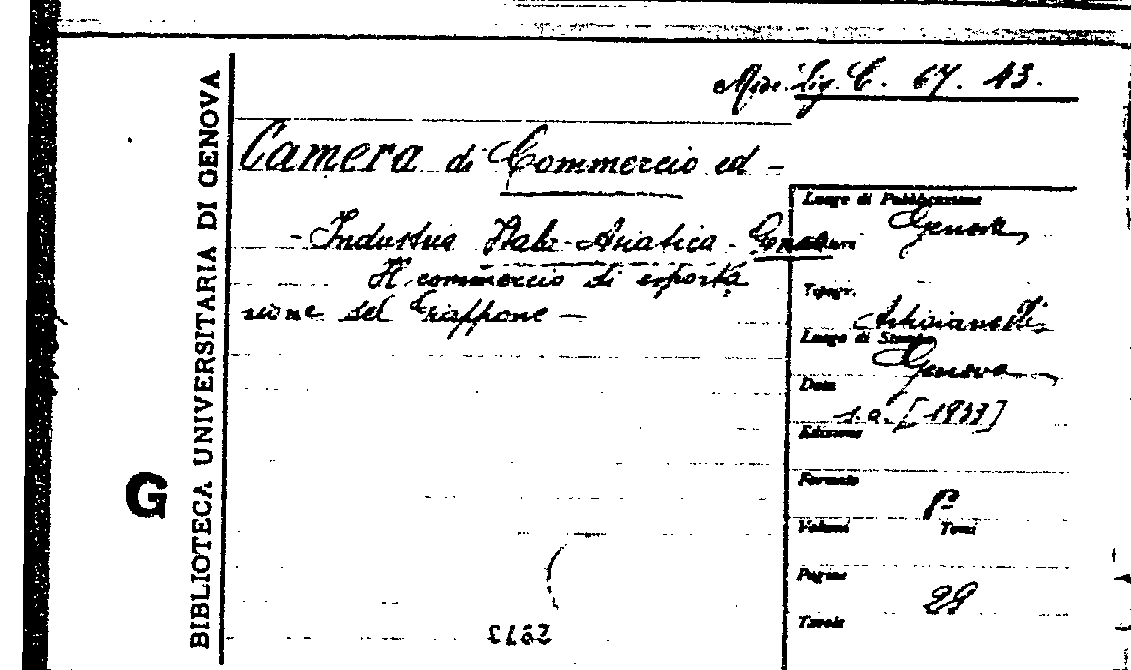 Misc. Lig. C. 67. 43.
Camera di Commercio ed -
- Industria Italo-Asiatica - Genova
Il commercio di esporta
zione del Giappone —
BIBLIOTECA UNIVERSITARIA DI GENOVA
G
Luogo di Pubblicazione
Genova
Tipogr.
Luogo di Stampa
Genova
Data
s.a. [1933]
Edizione
Formato
8°
Volumi Tomi
Pagine
29
Tavole
2973